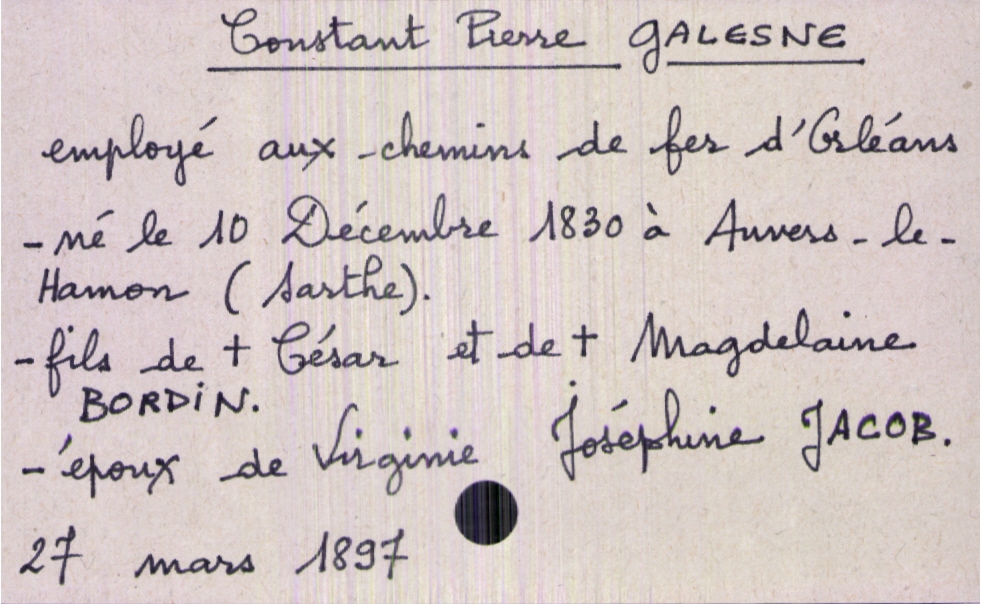 Constant Pierre GALESNE
employé aux chemins de fer d'Orléans
- né le 10 Décembre 1830 à Auvers-le-
Hamon (Sarthe).
- fils de + César et de + Magdelaine
BORDIN.
- époux de Virginie Joséphine JACOB.
27 mars 1897